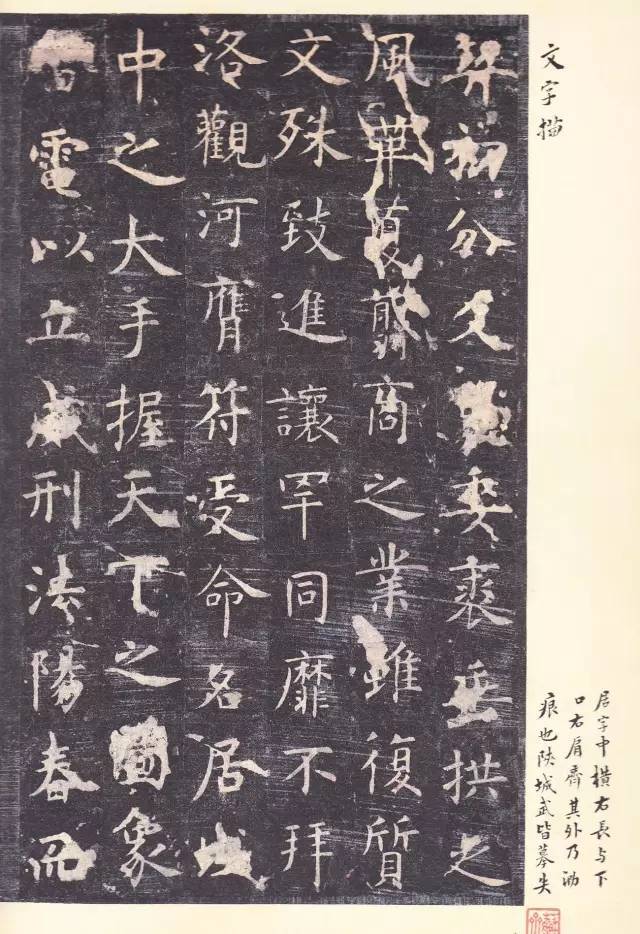 文字描
契初分爻委裘垂拱之
風華夏翦商之業雖復質
文殊致進讓罕同靡不拜
洛觀河膺符受命名居域
中之大手握天下之圖象
電以立威刑法陽春而
居字中橫右長与下
口右肩齊其外乃泐
痕也陝城武皆摹失